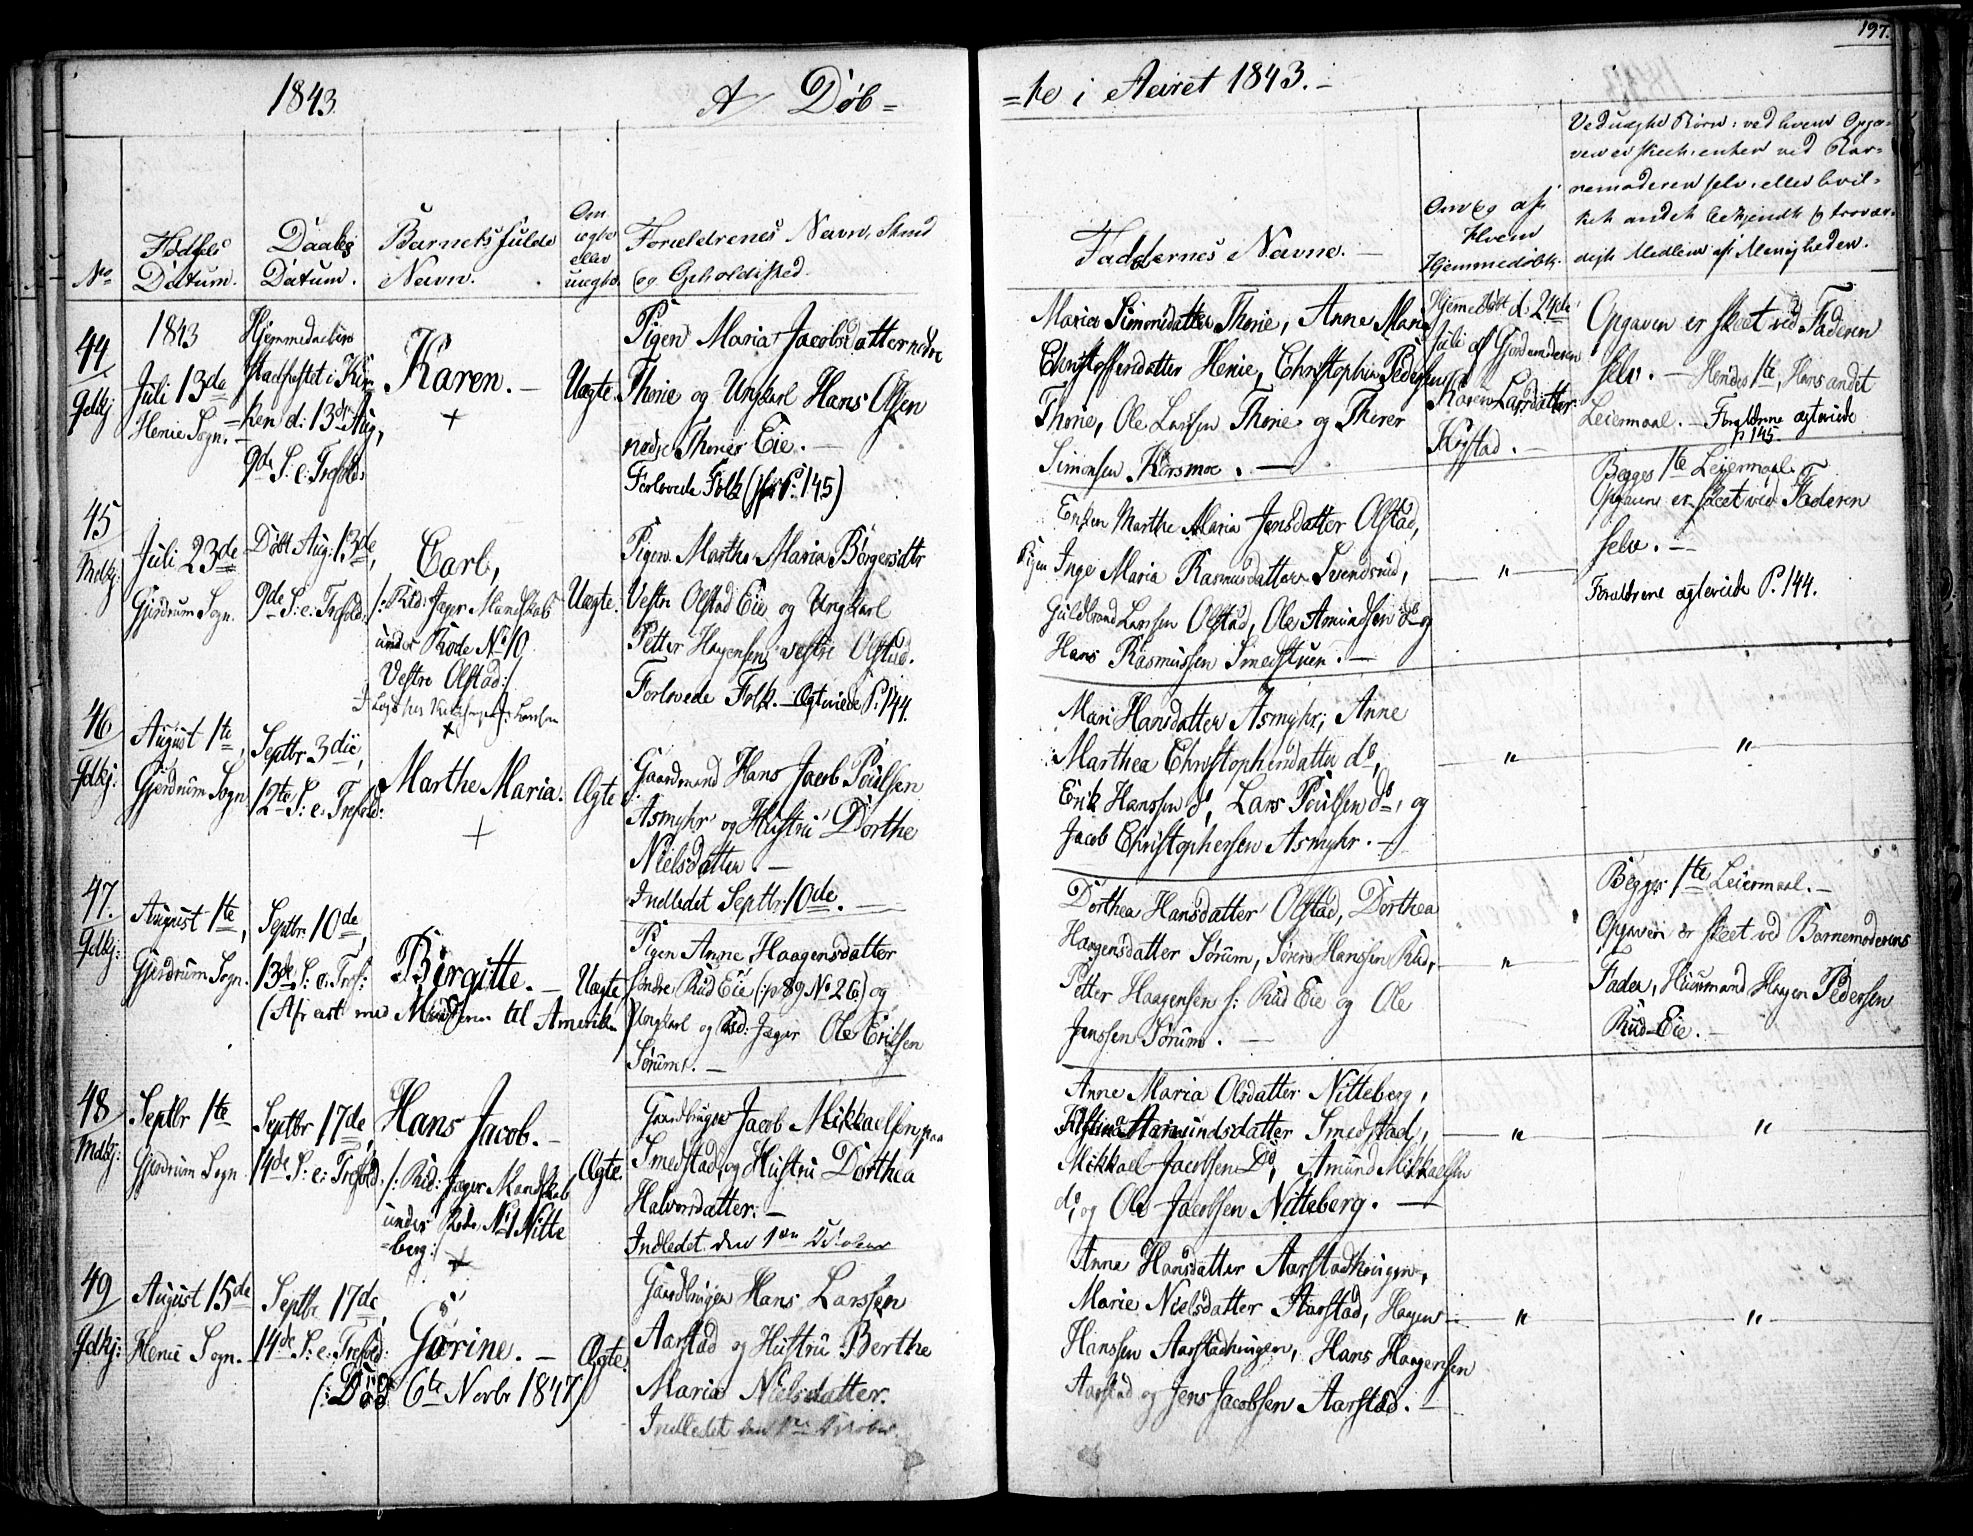 1843 A Döb=
No
Fødsels
Datum.
Daabs
Datum.
Barnets fulde
Navn.
Om
ægte
eller
uægte
Forældrenes Navn, Stand
og Opholdssted.
44
Gdkj:
1843
Juli 13de
Henie Sogn. -
Hjemmedaaben
stadfæstet i Kir=
ken d: 13de Aug,
9de S: e: Trefold:
Karen. -
+
Uægte.
Pigen Maria Jacobsdatter nedre
Thorie og Ungkarl Hans Olsen
nedre Thories Eie. -
Forlovede Folk (jfr P. 145)
45
Mdkj:
Juli 23de
Gjerdrum Sogn.
Döbt Aug: 13de,
9de S: e: Trefold:
Carl,
/: Rid: Jæger Mandskab
under Rode No 10
Vestre Olstad:/
+
Uægte.
Pigen Marthe Maria Börgersdtr
Vestre Olstad Eie og Ungkarl
Petter Haagensen vestre Olstad.
Forlovede Folk. - Ægteviede P. 144.
46
Gdkj:
August 1te,
Gjerdrum Sogn
Septbr 3die,
12te S: e: Trefold:
Marthe Maria.
+
Ægte
Gaardmand Hans Jacob Poulsen
Asmyhr og Hustru Dorthe
Nielsdatter. -
Indledet Septbr 10de. -
47.
Gdkj:
August 1te,
Gjerdrum Sogn.
Septbr. 10de,
13de S: e: Tref:
Birgitte. -
(Afreist med Moderen til Amerika)
Uægte
Pigen Anne Haagensdatter
søndre Rud Eie (: p 89 No 26) og
Ungkarl og Rid: Jæger Ole Eriksen
Sörum. -
48
Mdkj:
Septbr 1te
Gjerdrum Sogn
Septbr 17de,
14de S: e: Trefold,
Hans Jacob. -
/: Rid: Jæger Mandskab
under Rode No 1 Nitte
=berg:/
+
Ægte.
Gaardbruger Jacob Mikkaelsen paa
Smedstad og Hustru Dorthea
Halvorsdatter. -
Indledet den 1ste October
49
Gdkj:
August 15de
Henie Sogn. -
Septbr 17de,
14de S: e: Trefold:
Görine. -
(: Död 6te Novbr 1847)
Ægte.
Gaardbruger Hans Larssen
Aarstad og Hustru Berthe
Maria Nielsdatter.
Indledet den 1ste October.
197.
=te i Aaret 1843. -
Faddernes Navne. -
Om og af
Hvem
Hjemmedöbt.
Ved uægte Börn: ved hvem Opga=
ven er skeet, enten ved Bar=
nemoderen selv, eller hvil=
ket andet bekjendt og trovær=
digt Medlem af Menigheden.
Maria Simonsdatter Thorie, Anne Maria
Christoffersdatter Henie, Christopher Pedersen
Thorie, Ole Larssen Thorie og Thorer
Simonsen Korsmoe. -
Hjemedöbt d. 24de
Juli af Gjordmoderen
Karen Larsdatter
Kogstad. -
Opgaven er skeet ved Faderen
selv. - Hendes 1te, Hans andet
Leiermaal. - Forældrene ægteviede
p 145.
Enken Marthe Maria Jensdatter Olstad,
Pigen Inge Maria Rasmusdatter Svendsrud,
Guldbrand Larssen Olstad, Ole Asmundsen do og
Hans Rasmussen Smedstuen. -
- " -
Begges 1te Leiermaal.
Opgaven er skeet ved Faderen
selv. -
Forældrene ægteviede P. 144.
Mari Hansdatter Asmyhr, Anne
Marthea Christophersdatter do,
Erik Hanssen do, Lars Poulsen do, og
Jacob Christophersen Asmyhr. -
- " -
- " -
Dorthea Hansdatter Olstad, Dorthea
Haagensdatter Sörum, Sören Hanssen Rud,
Petter Haagensen s: Rud Eie og Ole
Janssen Sörum. -
- " -
Begges 1te Leiermaal. -
Opgaven er skeet ved Barnemoderens
Fader, Huusmand Haagen Pedersen
Rud-Eie. -
Anne Maria Olsdatter Nitteberg,
Kristine Aamundsdatter Smedstad,
Mikkael Jacobsen Do, Amund Mikkaelsen
do, og Ole Jacobsen Nitteberg. -
- " -
- " -
Anne Hansdatter Aarstadhougen,
Marie Nielsdatter Aarstad, Haagen
Hanssen Aarstadhougen, Hans Haagensen
Aarstad og Jens Jacobsen Aarstad. -
- " -
- " -